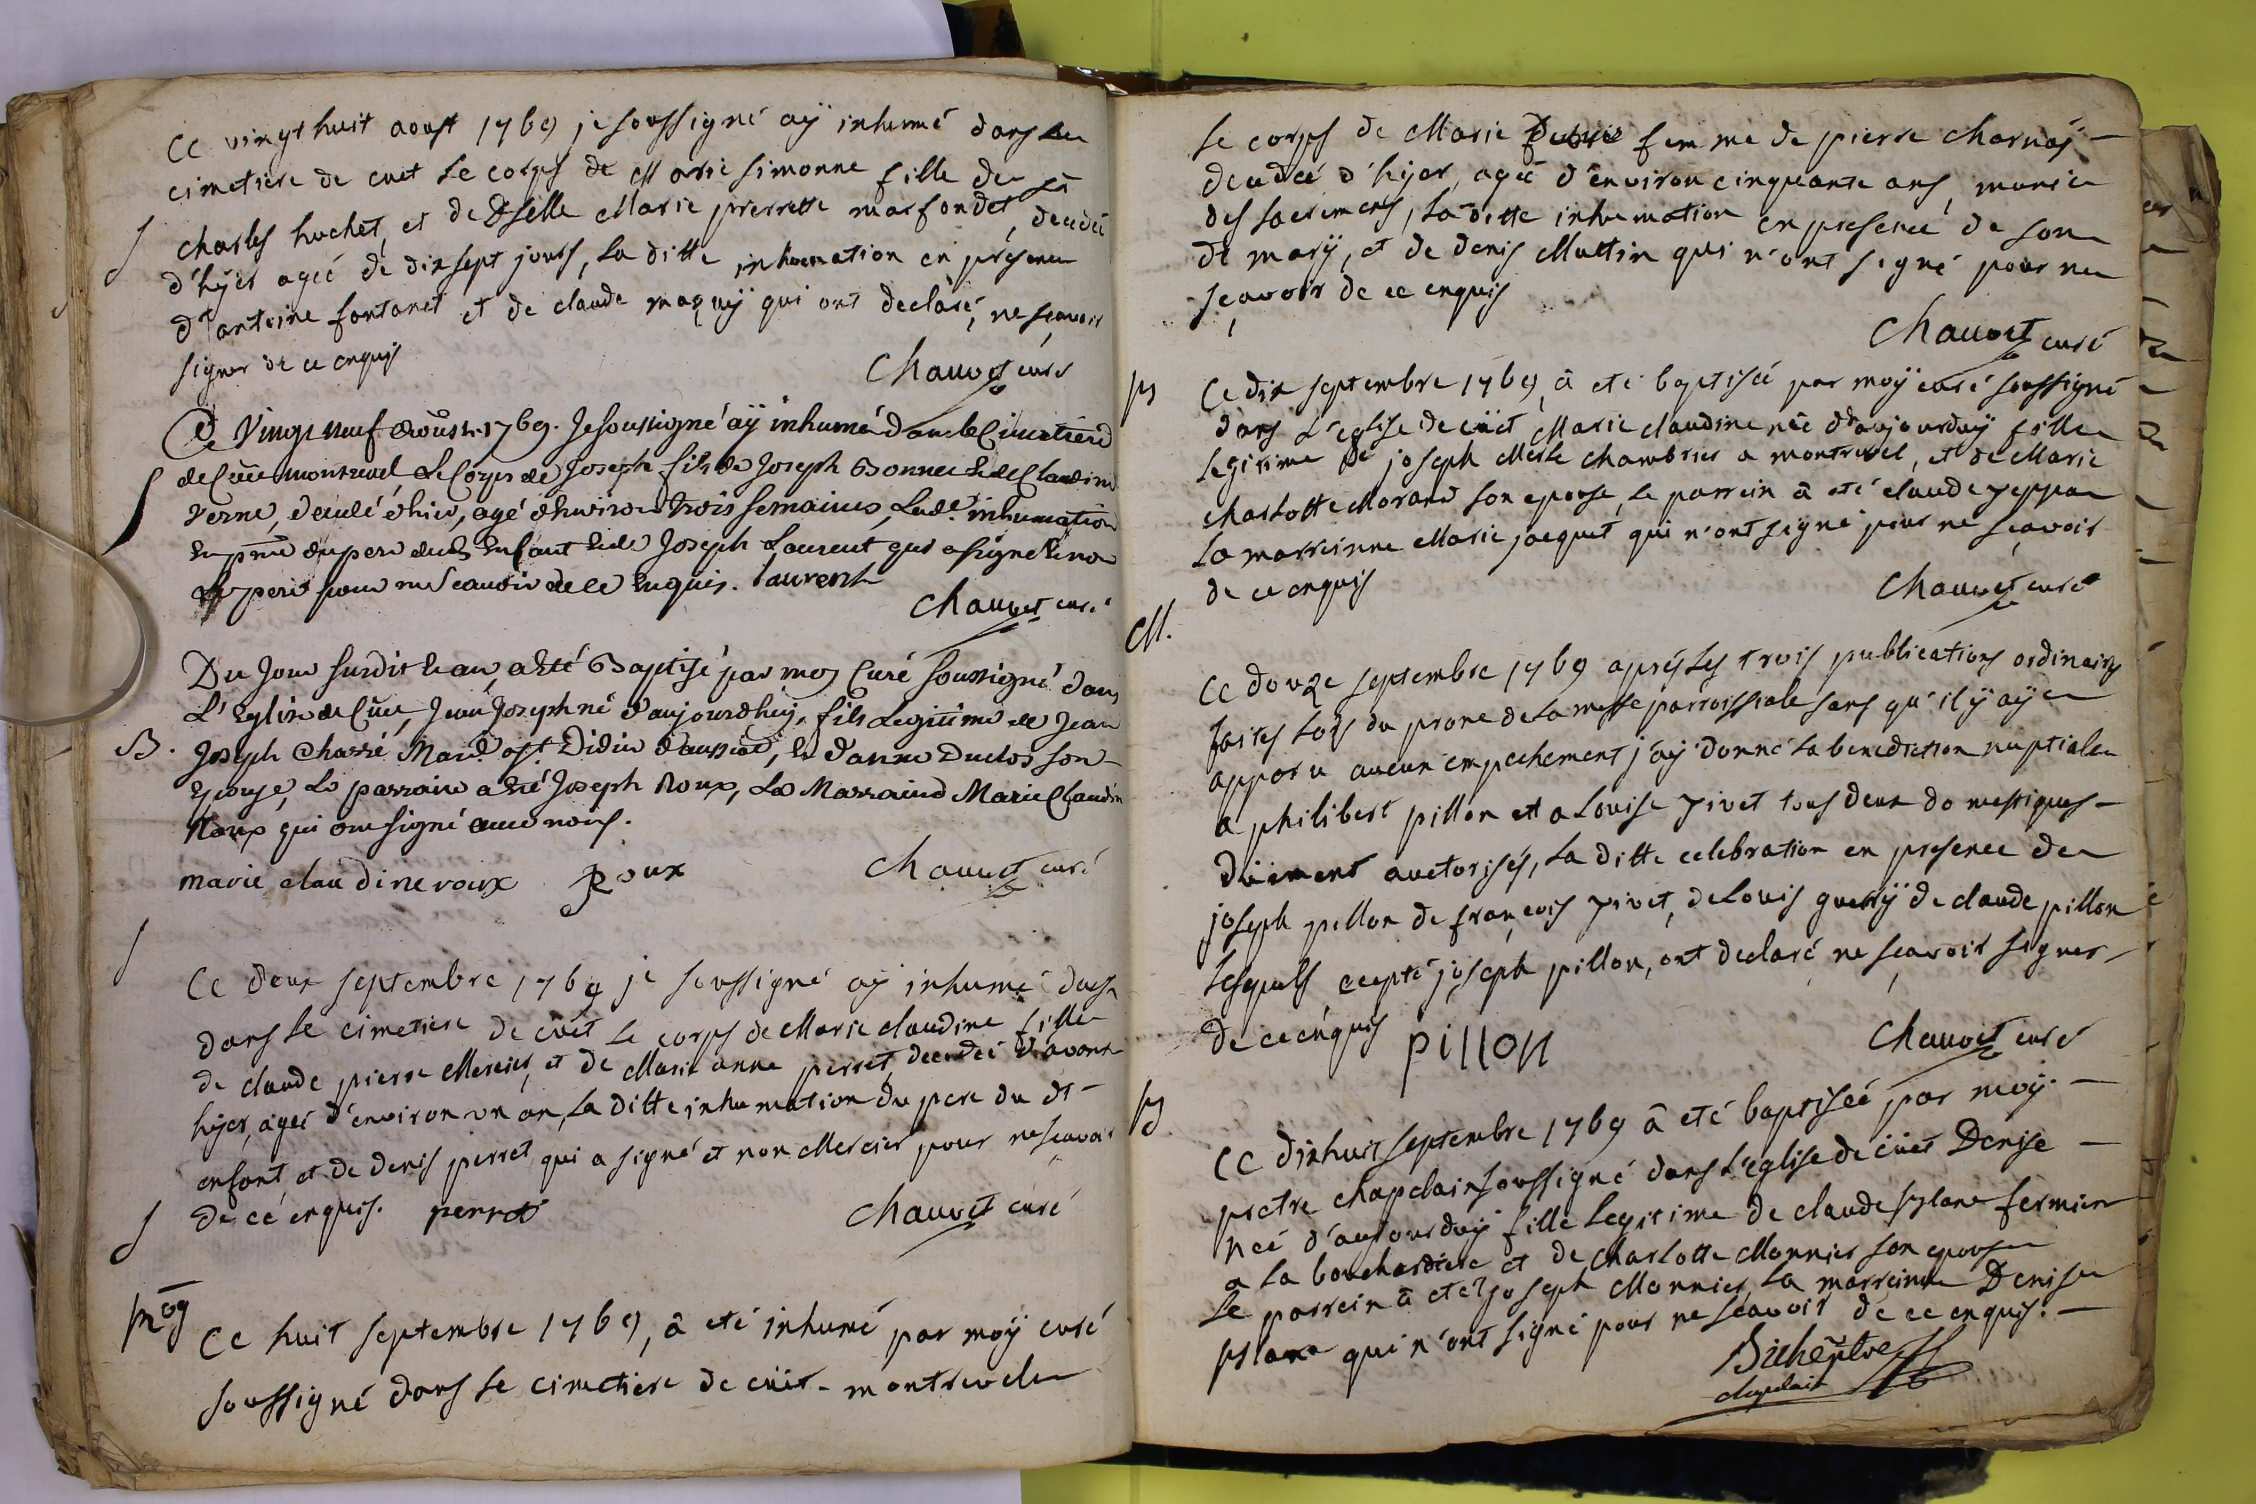 Ce vingt huit aoust 1769 je soussigné aÿ inhumé dans le
cimetiere de cuet le corps de Marie simonne fille de sr
S charles huchet, et de Dselle Marie pierrette marfondet, decedeé
d'hÿer ageé de dixsept jours, la ditte inhumation en presence
d'antoine fontanet et de claude maquÿ qui ont declaré, ne sçavoir
signer de ce enquis
Chauvet curé
Ce Vingt neuf aoust 1769. Je soussigné aÿ inhumé dans le Cimetiere
de Cuet montrevel Le Corps de Joseph fils de Joseph Bonnet et de Claudine
S Verne, decedé d'hier, agé d'environ trois semaines, Lade. inhumation
en pnce du pere dudt Enfant et de Joseph Laurent qui a signé et non
le pere pour ne scavoir de ce Enquis. laurent
Chauvet curé
Du Jour susdit et an, a Eté Baptisé par moy Curé soussigné dans
L'Eglise de Cuet, Jean Joseph né d'aujourdhuy, fils Legitime de Jean
B. Joseph Charré Mard. d'aussiat, et d'anne Duclos son
Epouse, Le parrain a Eté Joseph Roux, La Marraine Marie Claudine
Roux qui ont signé avec nous.
marie claudine roux Roux Chauvet curé
S
Ce deux septembre 1769 je soussigné aÿ inhumé
dans le cimetiere de cuet le corps de Marie claudine fille
de claude pierre Mercier, et de Marie anne perret, decedeé d'avant
hyer, ageé d'environ un an, la ditte inhumation du pere du dt
enfant et de denis perret qui a signé et non Mercier pour ne sçavoir
de ce enquis. perret Chauvet curé
S
Ce huit septembre 1769, â eté inhumé par moÿ curé
soussigné dans le cimetiere de cuet - montrevel
le corps de Marie femme de pierre charnaÿ
decedeé d'hÿer, ageé d'environ cinquante ans, munie
des sacremens, la ditte inhumation en presence de son
dt marÿ, et de denis Muttin qui n'ont signé pour ne
sçavoir de ce enquis
Chauvet curé
B Ce dix septembre 1769, â eté baptiseé par moÿ curé soussigné
dans l'eglise de cuet Marie claudine neé d'aujourduÿ fille
legitime de joseph Merle chambrier a montrevel, et de Marie
charlotte Morand son epouse, le parrein â eté claude peppe
la marreinne Marie jacquet qui n'ont signé pour ne sçavoir
de ce enquis
Chauvet curé
M.
Ce douze septembre 1769 aprés les trois publications ordinaires
faites lors du prone de la messe parroissiale sans qu'il ÿ aÿe
apparu aucun empechement j'aÿ donné la benediction nuptiale
a philibert pillon et a Louise pivet tous deux domestiques
düement auctorisés, la ditte celebration en presence de
joseph pillon de françois pivet, de Louis guerrÿ de claude pillon
lesquels, cepté joseph pillon, ont declaré ne sçavoir signer
de ce enquis pillon
Chauvet curé
B
Ce dixhuit septembre 1769 â eté baptiseé par moÿ
pretre chapelain soussigné dans l'eglise de cuet Denise
neé d'aujourduÿ fille legitime de claude pslane fermier
a la bouchardiere et de charlotte Monnier son epouse
le parrein â eté joseph Monnier la marreinne Denise
pslane qui n'ont signé pour ne sçavoir de ce enquis.
chapelain